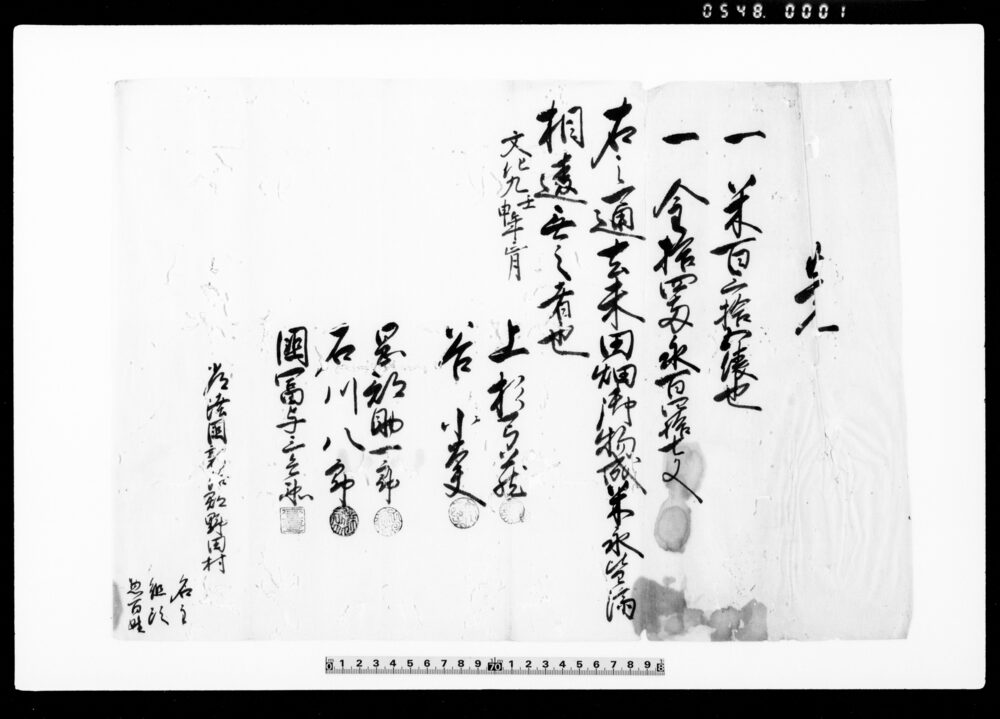 0548. 0001
覚
一 米百二拾四俵也
一 金拾四両永百四拾七文
右之通去未田畑御物成米永皆済
相違無之者也
文化九壬申年正月
上 弥
谷 小左
助一郎
石川八郎
関冨与三
常陸国新治郡野田村
名主
組頭
惣百姓
0 1 2 3 4 5 6 7 8 9 70 1 2 3 4 5 6 7 8 9 8